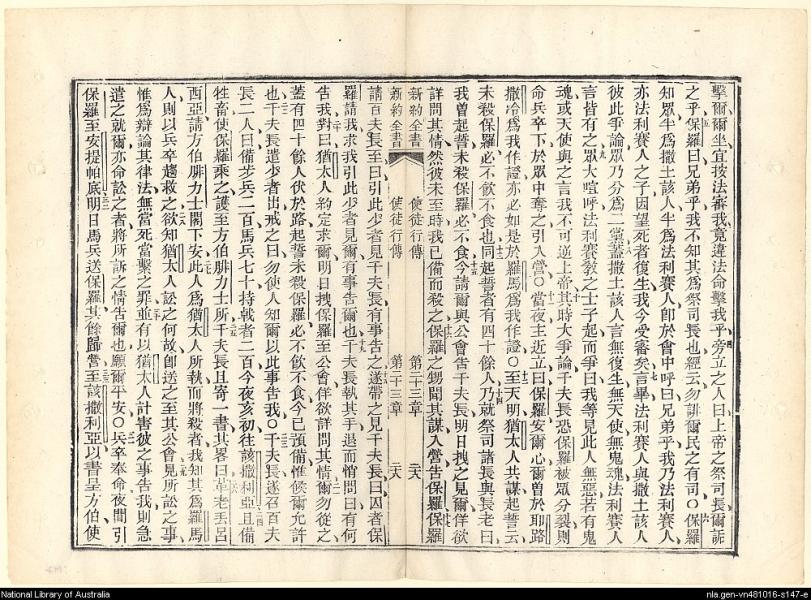 擊爾爾坐宜按法審我竟違法命擊我乎旁立之人曰上帝之祭司長爾詬
之乎保羅曰兄弟乎我不知其爲祭司長也經云勿誹爾民之有司○保羅
知眾半爲撒土該人半爲法利賽人卽於會中呼曰兄弟乎我乃法利賽人
亦法利賽人之子因望死者復生我今受審矣言畢法利賽人與撒土該人
彼此爭論眾乃分爲二黨蓋撒土該人言無復生無天使無鬼魂法利賽人
言皆有之眾大喧呼法利賽教之士子起而爭曰我等見此人無惡若有鬼
魂或天使與之言我不可逆上帝其時大爭論千夫長恐保羅被眾分裂則
命兵卒下於眾中奪之引入營○當夜主近立曰保羅安爾心爾曾於耶路
撒冷爲我作證亦必如是於羅馬爲我作證○至天明猶太人共謀起誓云
未殺保羅必不飲不食也同起誓者有四十餘人乃就祭司諸長與長老曰
我曾起誓未殺保羅必不食今請爾與公會告千夫長明日拽之見爾佯欲
詳問其情然彼未至時我已備而殺之保羅之甥聞其謀入營告保羅保羅
新約全書 使徒行傳 第二十三章 二六
新約全書 使徒行傳 第二十三章 二六
請百夫長至曰引此少者見千夫長有事告之遂帶之見千夫長曰囚者保
羅請我求我引此少者見爾有事告爾也千夫長執其手退而悄問曰有何
告我對曰猶太人約定求爾明日拽保羅至公會佯欲詳問其情爾勿從之
蓋有四十餘人伏於路起誓未殺保羅必不飲不食今已預備惟候爾允許
也千夫長遣少者出戒之曰勿使人知爾以此事告我○千夫長遂召百夫
長二人曰備步兵二百馬兵七十持戟者二百今夜亥初往該撒利亞且備
牲畜使保羅乘之護至方伯腓力士所千夫長且寄一書其畧曰革老丟呂
西亞請方伯腓力士閣下安此人爲猶太人所執而將殺者我知其爲羅馬
人則以兵卒趨救之欲知猶太人訟之何故卽送之至其公會見所訟之事
惟爲辯論其律法無當死當繫之罪並有以猶太人計害彼之事告我則急
遣之就爾亦命訟之者將所訴之情告爾也願爾平安○兵卒奉命夜間引
保羅至安提帕底明日馬兵送保羅其餘歸營至該撒利亞以書呈方伯使
National Library of Australia
nla.gen-vn481016-s147-e